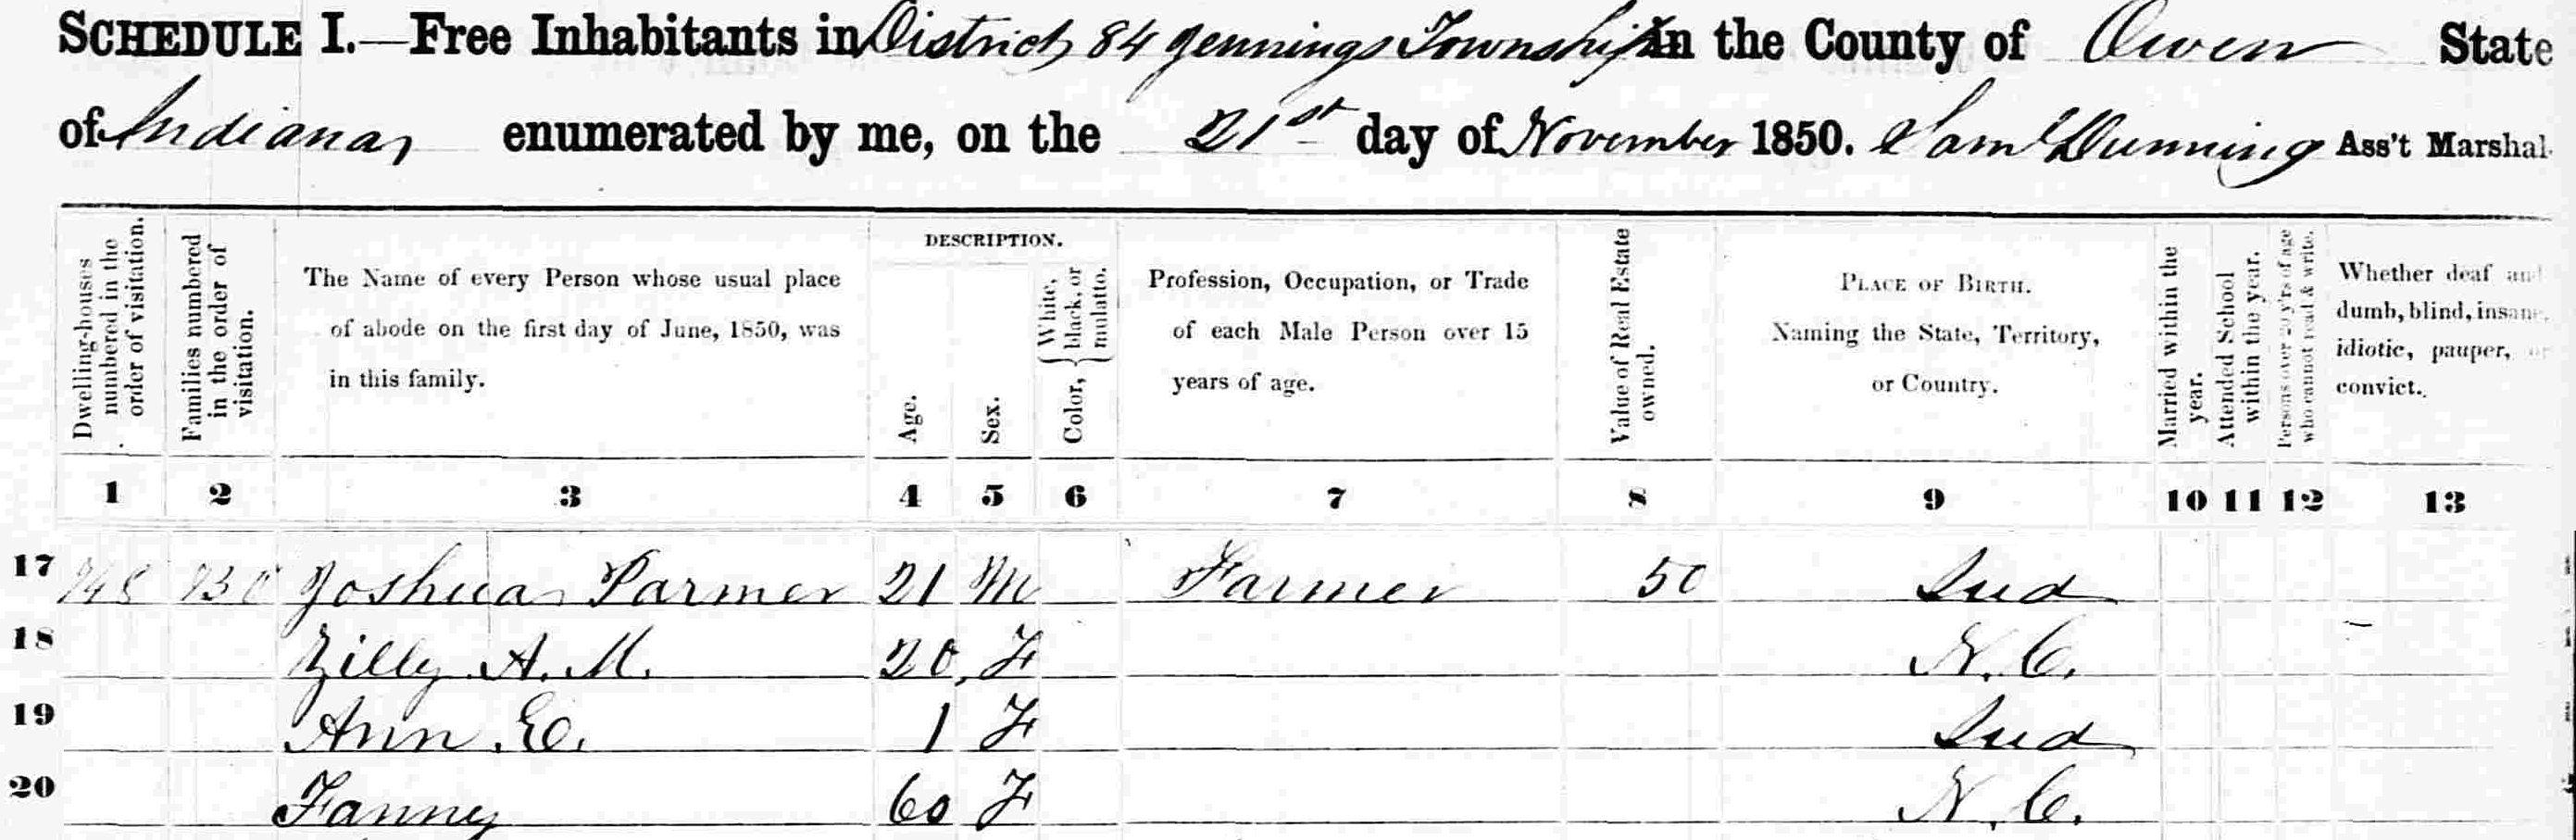 SCHEDULE I.—Free Inhabitants in District 84 Jennings Township in the County of Owen State
of Indiana enumerated by me, on the 21st day of November 1850. Saml Dunning Ass't Marshal.
Dwelling-houses numbered in the order of visitation.
Families numbered in the order of visitation.
The Name of every Person whose usual place
of abode on the first day of June, 1850, was
in this family.
DESCRIPTION.
Age.
Sex.
Color, { White, black, or mulatto.
Profession, Occupation, or Trade
of each Male Person over 15
years of age.
Value of Real Estate owned.
PLACE OF BIRTH.
Naming the State, Territory,
or Country.
Married within the year.
Attended School within the year.
Persons over 20 y'rs of age who cannot read & write.
Whether deaf and
dumb, blind, insane,
idiotic, pauper, or
convict.
1 2 3 4 5 6 7 8 9 10 11 12 13
17 Joshua Parmer 21 M Farmer 50 Ind
18 Zilly A. M. 20 F N. C.
19 Ann E. 1 F Ind
20 Fanny 60 F N. C.